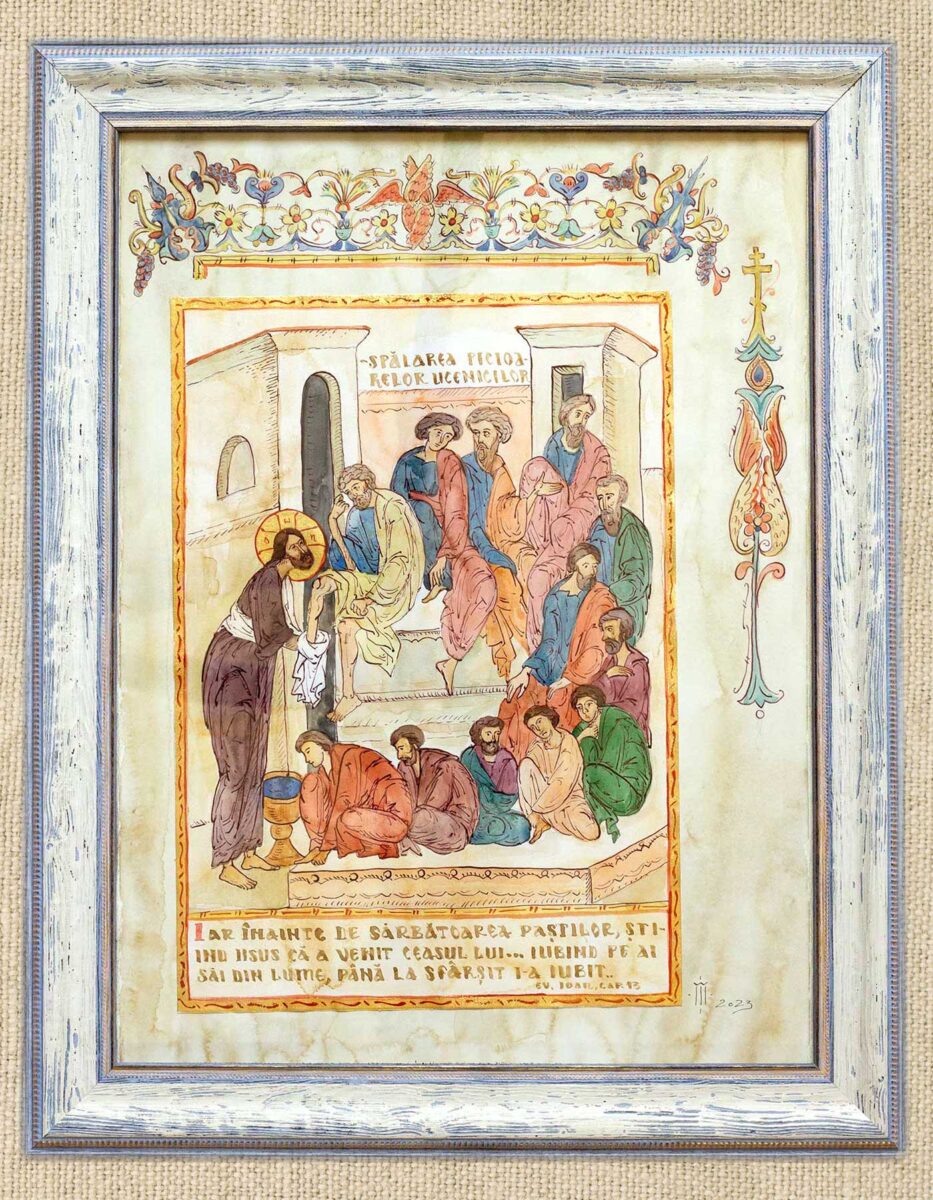 SPĂLAREA PICIOA-
RELOR UCENICILOR
IAR ÎNAINTE DE SĂRBĂTOAREA PAȘTILOR, ȘTI-
IND IISUS CĂ A VENIT CEASUL LUI... IUBIND PE AI
SĂI DIN LUME, PÂNĂ LA SFÂRȘIT I-A IUBIT..
EV. IOAN, CAP. 13
2023